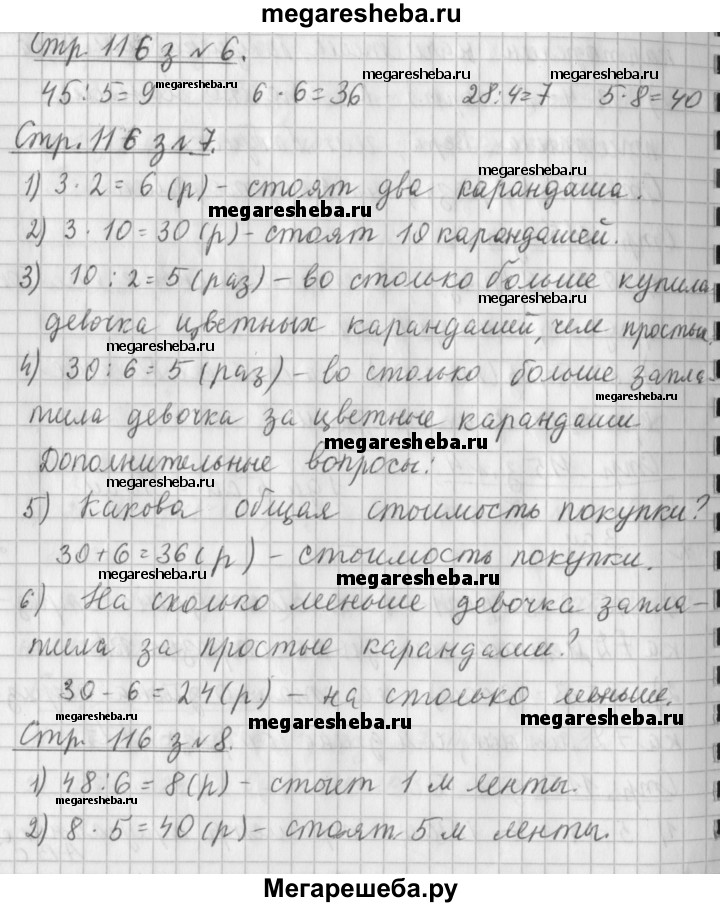 megaresheba.ru
Стр. 116 з № 6.
45 : 5 = 9 6 · 6 = 36 28 : 4 = 7 5 · 8 = 40
megaresheba.ru
megaresheba.ru
megaresheba.ru
Стр. 116 з № 7.
megaresheba.ru
1) 3 · 2 = 6 (р) - стоят два карандаша.
megaresheba.ru
2) 3 · 10 = 30 (р) - стоят 10 карандашей.
3) 10 : 2 = 5 (раз) - во столько больше купила
megaresheba.ru
девочка цветных карандашей, чем простых.
megaresheba.ru
4) 30 : 6 = 5 (раз) - во столько больше запла-
megaresheba.ru
тила девочка за цветные карандаши
megaresheba.ru
Дополнительные вопросы:
megaresheba.ru
5) Какова общая стоимость покупки?
30 + 6 = 36 (р) - стоимость покупки.
megaresheba.ru
megaresheba.ru
6) На сколько меньше девочка запла-
тила за простые карандаши?
30 - 6 = 24 (р) - на столько меньше.
megaresheba.ru
megaresheba.ru
megaresheba.ru
Стр. 116 з № 8.
1) 48 : 6 = 8 (р) - стоит 1 м ленты.
megaresheba.ru
2) 8 · 5 = 40 (р) - стоят 5 м ленты.
Мегарешеба.ру